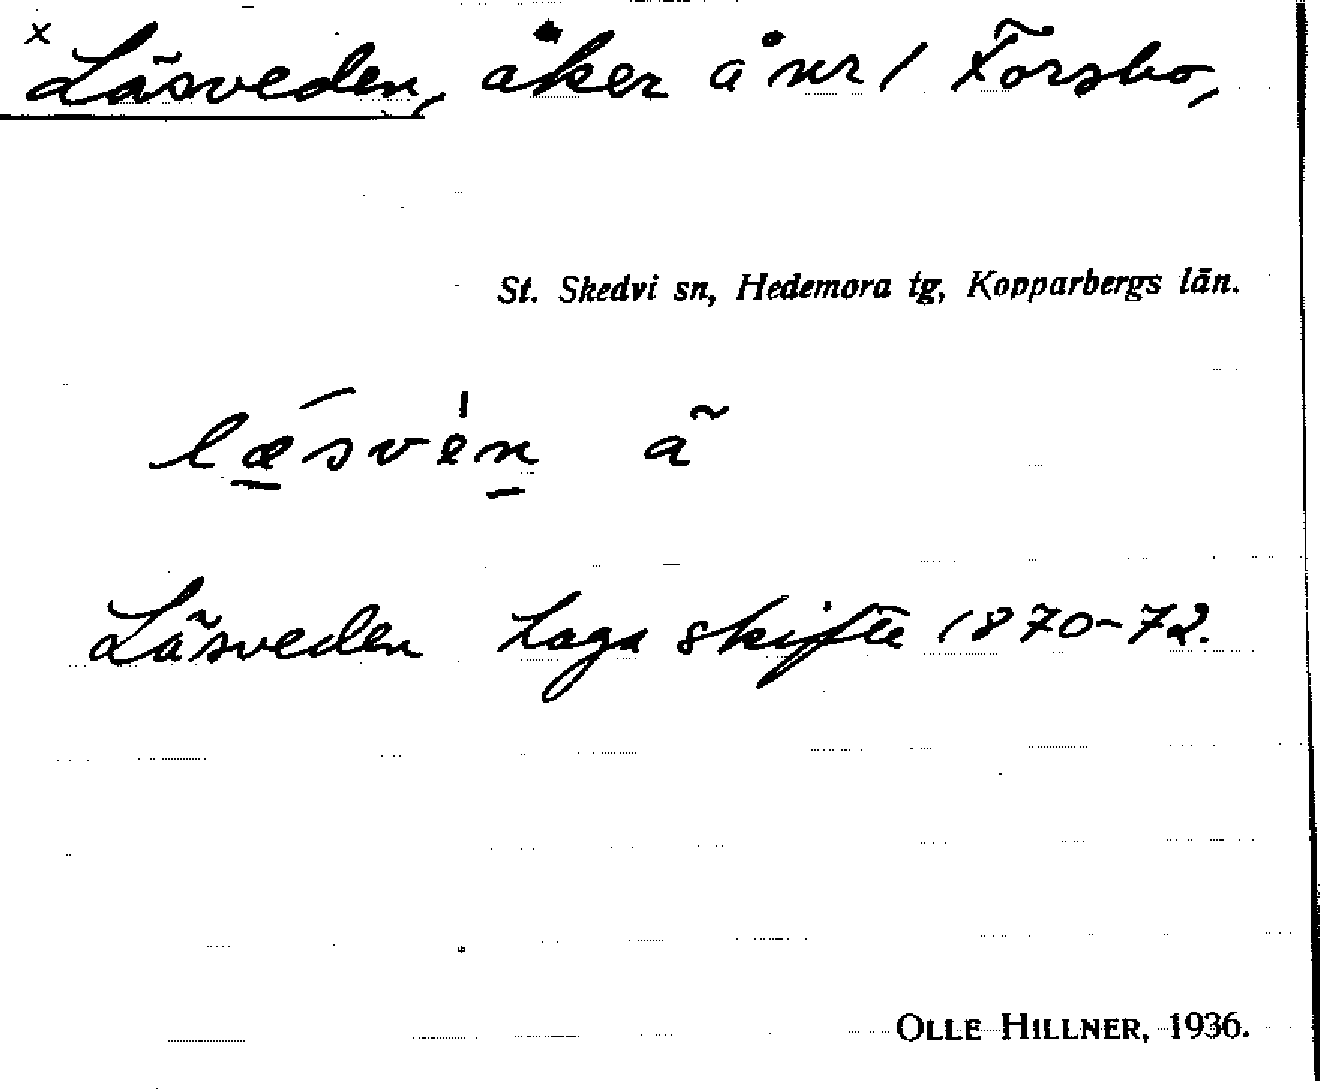 x Läsveden, åker å nr 1 Forsbo,
St. Skedvi sn, Hedemora tg, Kopparbergs län.
læsvèn ã
Läsveden Laga skifte 1870-72.
OLLE HILLNER, 1936.